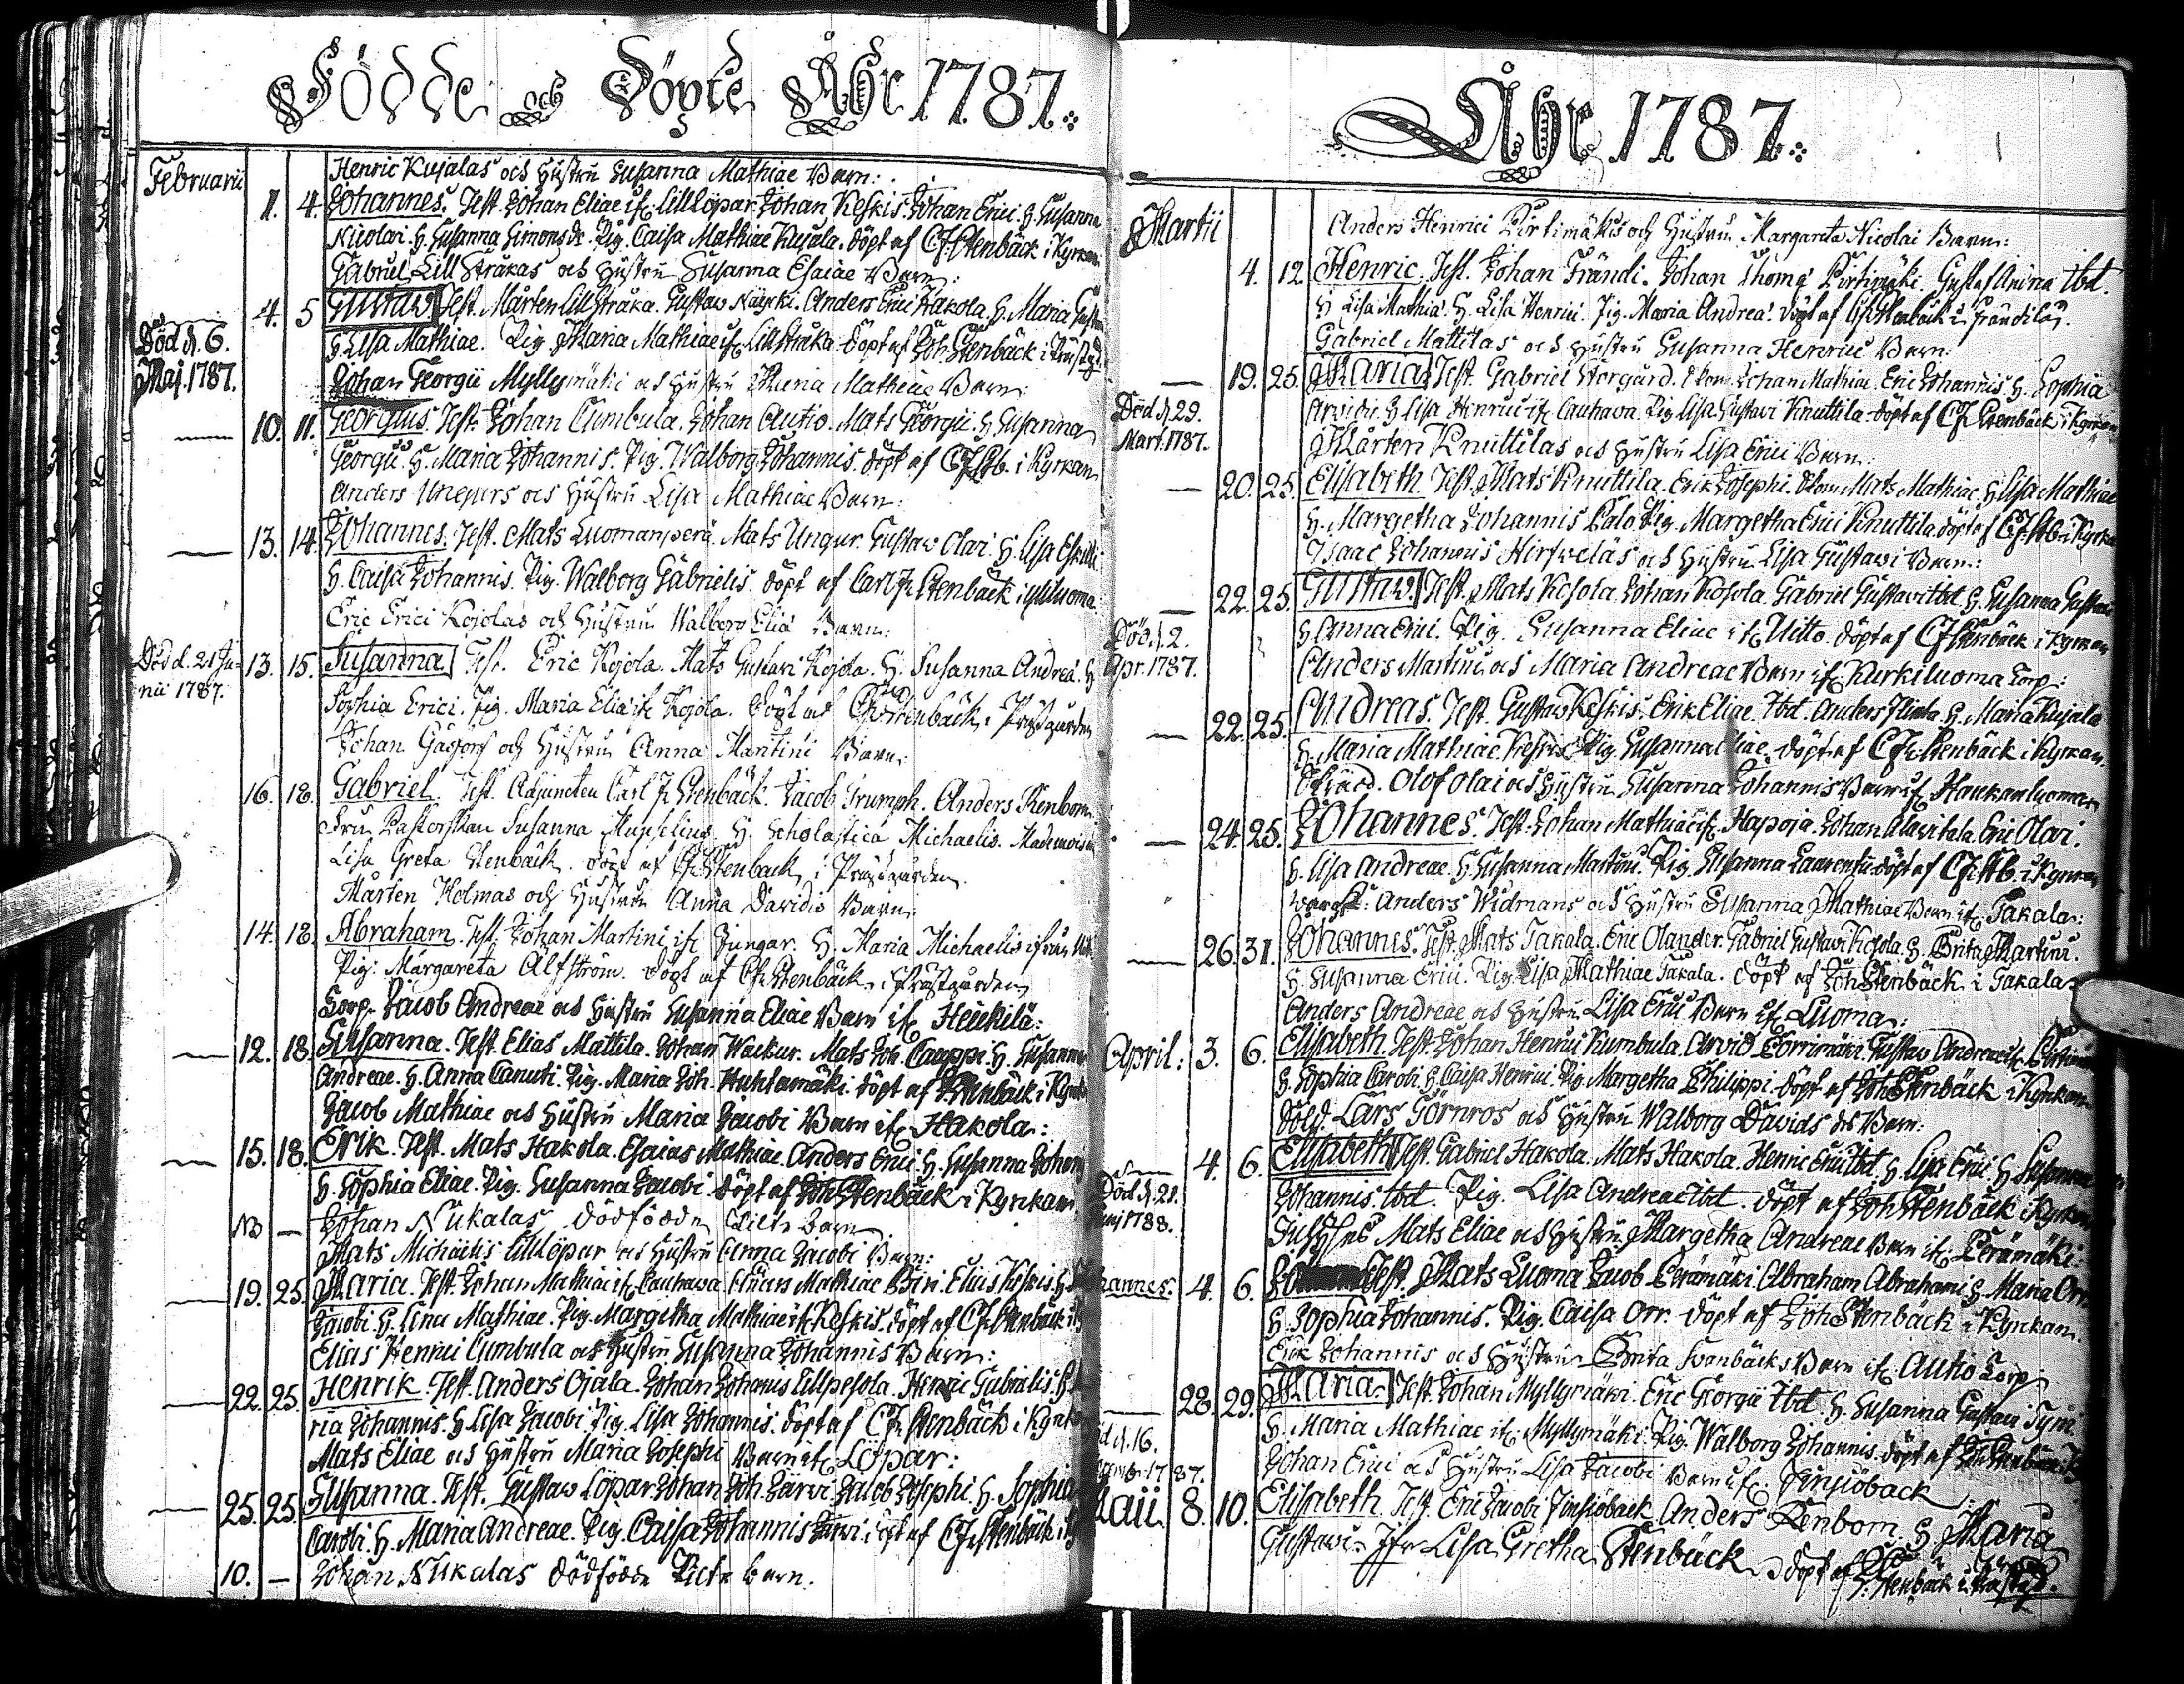 Födde och Döpte Åhr 1787.
Februarii
Henric Kujalas och Hustru Susanna Mathiae Barn:
1. 4. Johannes. Test. Johan Eliae if. Lillöpar. Johan Keskis. Johan Erici. H. Susanna
Nicolai. H. Susanna Simons dr. Pig. Caisa Mathiae Kujala. döpt af CJ Stenbäck i Kyrkan.
Gabriel Lill Strakas och Hustru Susanna Esaiae Barn:
4. 5 Gustaw Test. Mårten Lillstraka. Gustaw. Anders Erici Hakola. H. Maria
Död d. 6.
Maj. 1787.
H. Lisa Mathiae. Pig. Maria Mathiae if. Lillstraka. döpt af Joh. Stenbäck i Prästgd.
Johan Georgii Myllymäki och Hustru Maria Mathiae Barn:
10. 11. Georgius. Test. Johan Cumbula. Johan Autio. Mats Georgii. H. Susanna
Georgii. H. Maria Johannis. Pig. Walborg Johannis. döpt af CJ Stb. i Kyrkan
Anders Ungurs och Hustru Lisa Mathiae Barn:
13. 14. Johannes. Test. Mats Luomanperä. Mats Ungur. Gustaw Olai. H. Lisa
H. Caisa Johannis. Pig. Walborg Gabrielis. döpt af Carl Fr Stenbäck i
Eric Erici Kojolas och Hustru Walborg Eliae Barn:
Död d. 21 Ju-
nii 1787.
13. 15. Susanna Test. Eric Kojola. Mats Gustavi Kojola. H. Susanna Andreae. H
Sophia Erici. Pig. Maria Eliae if. Kojola. döpt af Stenbäck i Prästgården
Johan och Hustru Anna Martini Barn:
16. 18. Gabriel. Test. Adjuncten Carl Fr Stenbäck. Jacob Trumph. Anders Renbom.
Fru Pastorskan Susanna. H. Scholastica Michaelis. Mademois
Lisa Greta Stenbäck. döpt af Stenbäck i Prästgården.
Mårten Holmas och Hustru Anna Davidis Barn:
14. 18. Abraham. Test. Johan Martini if. Jungar. H. Maria Michaelis
Pig. Margareta Alfström. döpt af Stenbäck i Prästgården
Torp. Jacob Andreae och Hustru Susanna Eliae Barn if. Heickilä:
12. 18. Susanna. Test. Elias Mattila. Johan Wackur. Mats Joh. Cauppi. H. Susanna
Andreae. H. Anna Canuti. Pig. Maria Joh. Huhtamäki. döpt af Stenbäck i Kyrk
Jacob Mathiae och Hustru Maria Jacobi Barn if. Hakola:
15. 18. Erik. Test. Mats Hakola. Esaias Mathiae. Anders Erici. H. Susanna Johan
H. Sophia Eliae. Pig. Susanna Jacobi döpt af Joh Stenbäck i Kyrkan
NB — Johan Nikalas dödfödde barn
Mats Michaelis Lillöpar och Hustru Anna Jacobi Barn:
19. 25. Maria. Test. Johan Mathiae if. Cauhava. Mathiae. Elias Keskis. H
Jacobi. H. Lena Mathiae. Pig. Margetha Mathiae if. Keskis. döpt af CF Stenbäck i
Elias Henrici Cumbula och Hustru Susanna Johannis Barn:
22. 25. Henrik. Test. Anders Ojala. Johan Johannis Lillpesola. Henric Gabrielis. H. Ma
ria Johannis. H. Lisa Jacobi. Pig. Lisa Johannis. döpt af CF Stenbäck i Kyrk
Mats Eliae och Hustru Maria Josephi Barn if. Löpar:
25. 25. Susanna. Test. Gustaw Löpar. Johan Joh. Järvi. Jacob Josephi. H. Sophia
Caroli. H. Maria Andreae. Pig. Caisa Johannis Järvi. döpt af CF Stenbäck i
10. — Johan Nikalas dödfödde barn.
Åhr 1787.
Martii
Anders Henrici Pirtimäkis och Hustru Margareta Nicolai Barn:
4. 12 Henric. Test. Johan Frändi. Johan Thomae Pirtimäki. Gustaf Andreae Ibd.
H Lisa Mathiae. H. Lisa Henrici. Pig. Maria Andreae. döpt af Stenbäck i Frändilä.
Gabriel Mattilas och Hustru Susanna Henrici Barn:
19. 25. Maria Test. Gabriel Storgård. Johan Mathiae. Eric Johannis. H. Sophia
Död d. 29.
Mart. 1787.
Arvidi. H Lisa Henrici if. Cauhava. Pig. Lisa Gustavi Knuttila. döpt af CF Stenbäck i Kyrkan
Mårten Knuttilas och Hustru Lisa Erici Barn:
20. 25. Elisabeth. Test. Mats Knuttila. Erik Josephi. Mats Mathiae. H Lisa Mathiae
H. Margetha Johannis Palo. Pig. Margetha Erici Knuttila. döpt af CF Stb. i Kyrka
Isaac Johannis Hirsveläs och Hustru Lisa Gustawi Barn:
22. 25. Gustaw. Test. Mats Kojola. Johan Kojola. Gabriel Gustavi Ibd. H. Susanna Gustavi
Död d. 2.
Apr. 1787.
H Anna Erici. Pig. Susanna Eliae if. Uitto. döpt af CF Stenbäck i Kyrkan
Anders Martini och Maria Andreae Barn if. Kurkiluoma Torp:
22. 25. Andreas. Test. Gustaw Keskis. Erik Eliae Ibd. Anders. H. Maria Kujala
H. Maria Mathiae Keskis. Pig. Susanna Eliae. döpt af CF Stenbäck i Kyrkan.
Olof Olai och Hustru Susanna Johannis Barn if. Haukanluoma
24. 25. Johannes. Test. Johan Mathiae if. Hapoja. Johan Alavitala. Eric Olai.
H. Lisa Andreae. H. Susanna Martini. Pig. Susanna Laurentii. döpt af CF Stb. i Kyrkan
Anders Widmans och Hustru Susanna Mathiae Barn if. Takala:
26. 31. Johannes. Test. Mats Takala. Eric Olander. Gabriel Gustavi Kojola. H. Brita Martini.
H. Susanna Erici. Pig. Lisa Mathiae Takala. döpt af Joh Stenbäck i Takala
Anders Andreae och Hustru Lisa Erici Barn if. Luoma:
April: 3. 6. Elisabeth. Test. Johan Henrici Kumbula. Arvid Porrimäki. Gustaw Andreae if.
H. Sophia Caroli. H. Caisa Henrici. Pig. Margetha Philippi. döpt af Joh Stenbäck i Kyrkan
Sold. Lars Törnros och Hustru Walborg Davids dr Barn:
4. 6. Elisabeth Test. Gabriel Hakola. Mats Hakola. Henric Erici Ibd. H. Lisa Erici. H Susanna
Död d. 21.
Junj 1788.
Johannis Ibd. Pig. Lisa Andreae Ibd. döpt af Joh Stenbäck i Kyrkan
Mats Eliae och Hustru Margetha Andreae Barn if. Perämäki:
Johannes. 4. 6. Test. Mats Luoma. Jacob Perämäki. Abraham Abrahami. H. Maria Orr.
H. Sophia Johannis. Pig. Caisa Orr. döpt af Joh Stenbäck i Kyrkan.
Erik Johannis och Hustru Brita Svanbäcks Barn if. Autio Torp.
28. 29. Maria. Test. Johan Myllymäki. Eric Georgii Ibd. H. Susanna Gustavi
d. 16.
1787.
H. Maria Mathiae if. Myllymäki. Pig. Walborg Johannis. döpt af Joh Stenbäck
Johan Erici och Hustru Lisa Jacobi Barn if. Finsiöback
Maii 8. 10. Elisabeth. Test. Eric Jacobi Finsiöback. Anders Renbom. H Maria
Gustavi. Jfr Lisa Gretha Stenbäck. döpt af Stenbäck i Prästgd.